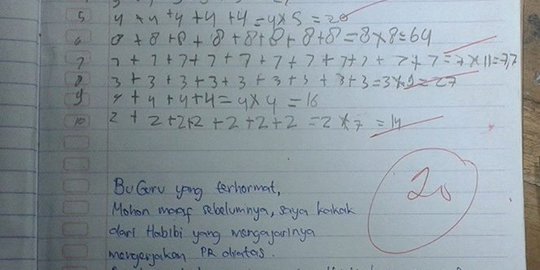 5 4 + 4 + 4 + 4 + 4 = 4 x 5 = 20
6 8 + 8 + 8 + 8 + 8 + 8 + 8 + 8 = 8 x 8 = 64
7 7 + 7 + 7 + 7 + 7 + 7 + 7 + 7 + 7 + 7 + 7 = 7 x 11 = 77
8 3 + 3 + 3 + 3 + 3 + 3 + 3 + 3 + 3 = 3 x 9 = 27
9 4 + 4 + 4 + 4 = 4 x 4 = 16
10 2 + 2 + 2 + 2 + 2 + 2 + 2 = 2 x 7 = 14
20
Bu Guru yang terhormat,
Mohon maaf sebelumnya, saya kakak
dari Habibi yang mengajarinya
mengerjakan PR diatas.